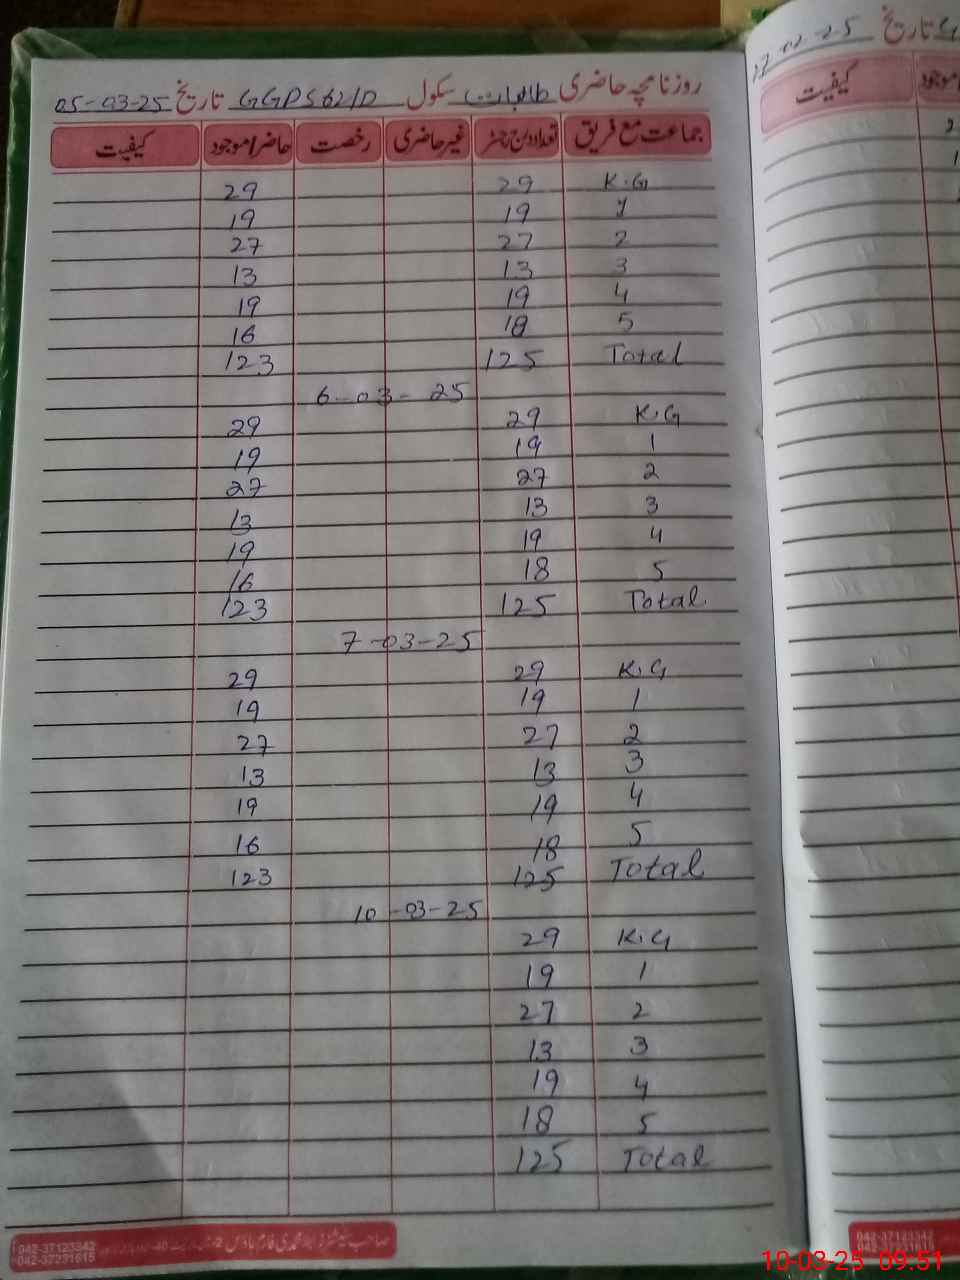 روزنامچہ حاضری طالبات سکول GGPS 62/D تاریخ 05-03-25
جماعت مع فریق تعداد درج رجسٹر غیر حاضری رخصت حاضر/موجود کیفیت
K.G 29 29
1 19 19
2 27 27
3 13 13
4 19 19
5 18 16
Total 125 123
6-03-25
K.G 29 29
1 19 19
2 27 27
3 13 13
4 19 19
5 18 16
Total 125 123
7-03-25
K.G 29 29
1 19 19
2 27 27
3 13 13
4 19 19
5 18 16
Total 125 123
10-03-25
K.G 29
1 19
2 27
3 13
4 19
5 18
Total 125
042-37123342
042-37231615
تاریخ 27-02-25
موجود کیفیت
042-37123342
10-03-25 09:51